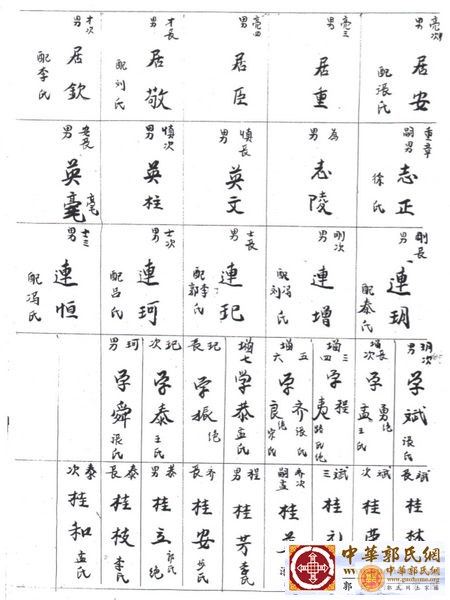 亮次男 居安 配張氏
亮三男 居重
亮四男 居臣
才長男 居敬 配刘氏
才次男 居欽 配李氏
重章嗣男 志正 徐氏
為男 志陵
慎長男 英文
慎次男 英柱
安長男 英毫
剛長男 連玥 配秦氏
明次男 連增 配冯氏 刘氏
士長男 連玘 配李氏 郭氏
士次男 連珂 配吕氏
士三男 連恒 配冯氏
玥次男 学斌 張氏
增長 勇绝
增次 学孟 王氏
增三 程
增四 学夷
增五 齐 張氏
增六 良 宋氏
增七 学恭 孟氏
玘長 学振 绝
玘次 学泰 王氏
珂男 学舜 張氏
斌長 桂林
斌次 桂
斌三 桂礼
齐次嗣孟 桂
程男 桂芳 李氏
齐長 桂安
恭男 桂立 郭氏 绝
泰長 桂枝 李氏
泰次 桂和 孟氏
中華郭氏網
www.guohome.org
郭